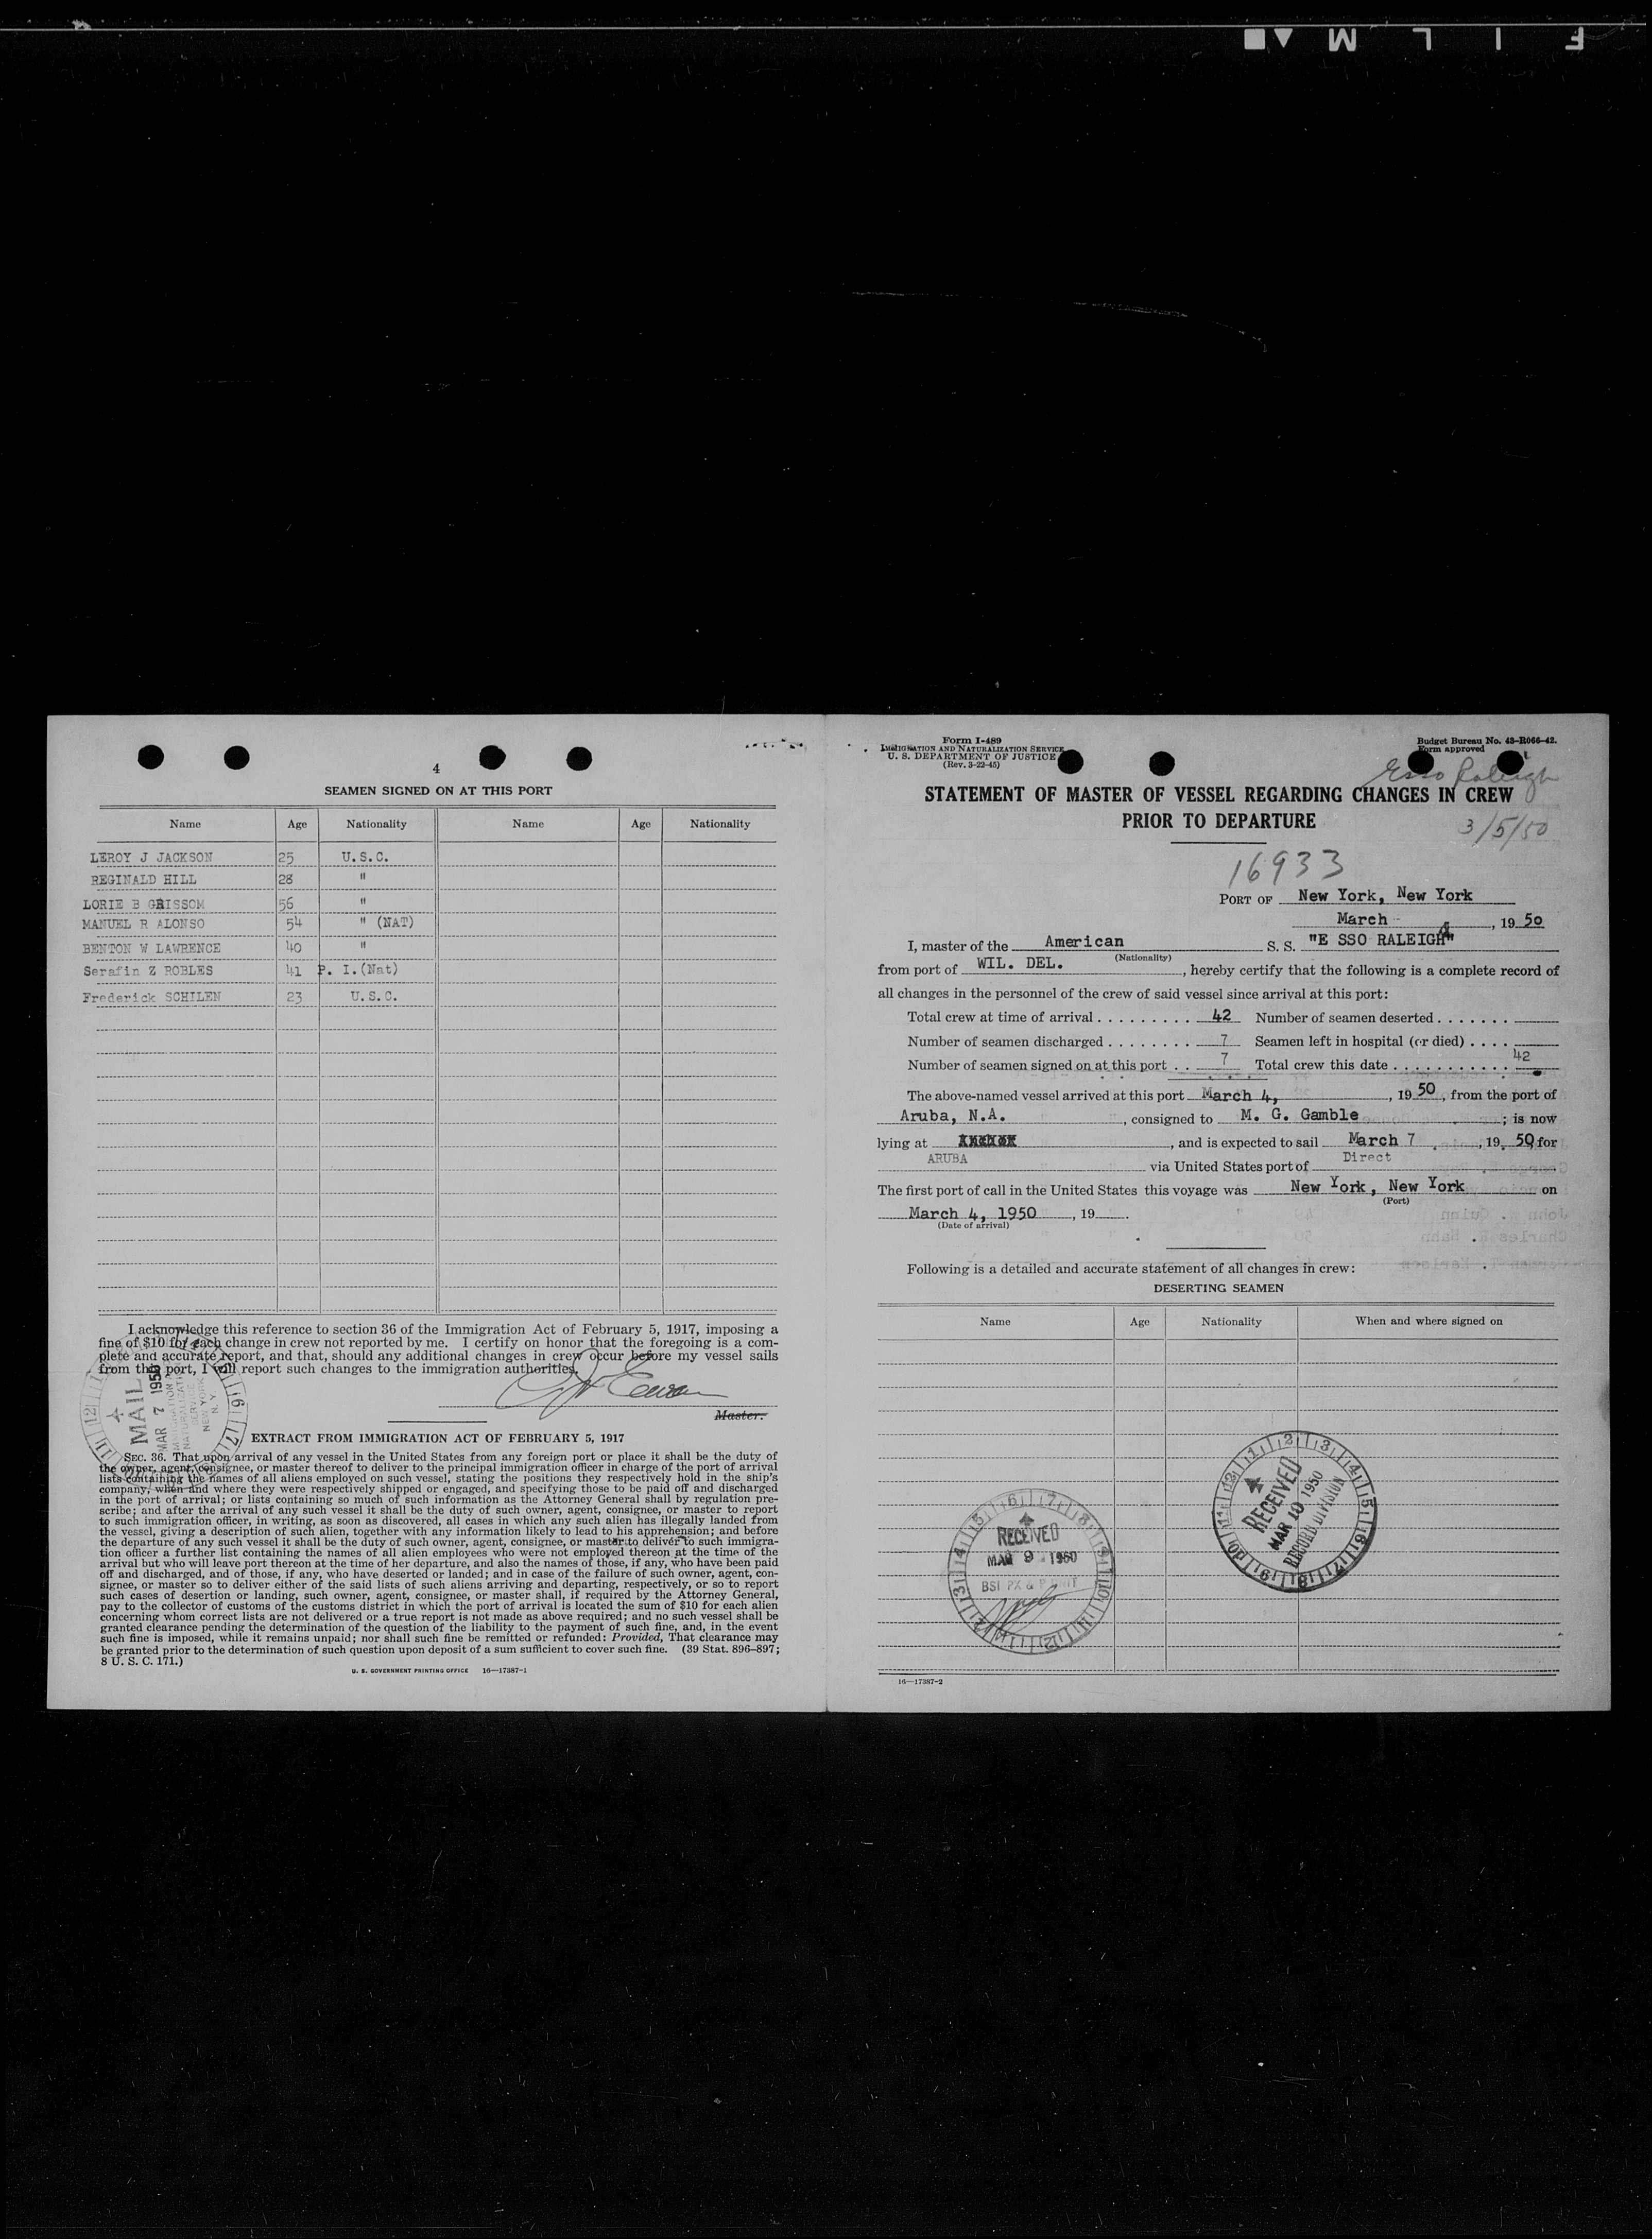 F I L M
4
SEAMEN SIGNED ON AT THIS PORT
Name Age Nationality Name Age Nationality
LEROY J JACKSON 25 U.S.C.
REGINALD HILL 28 "
LORIE B GRISSOM 56 "
MANUEL R ALONSO 54 " (NAT)
BENTON W LAWRENCE 40 "
Serafin Z ROBLES 41 P. I.(Nat)
Frederick SCHILEN 23 U.S.C.
I acknowledge this reference to section 36 of the Immigration Act of February 5, 1917, imposing a
fine of $10 for each change in crew not reported by me. I certify on honor that the foregoing is a com-
plete and accurate report, and that, should any additional changes in crew occur before my vessel sails
from this port, I will report such changes to the immigration authorities.
Master.
MAIL
MAR 7 1950
IMMIGRATION &
NATURALIZATION
SERVICE
NEW YORK
N. Y.
EXTRACT FROM IMMIGRATION ACT OF FEBRUARY 5, 1917
SEC. 36. That upon arrival of any vessel in the United States from any foreign port or place it shall be the duty of
the owner, agent, consignee, or master thereof to deliver to the principal immigration officer in charge of the port of arrival
lists containing the names of all aliens employed on such vessel, stating the positions they respectively hold in the ship's
company, when and where they were respectively shipped or engaged, and specifying those to be paid off and discharged
in the port of arrival; or lists containing so much of such information as the Attorney General shall by regulation pre-
scribe; and after the arrival of any such vessel it shall be the duty of such owner, agent, consignee, or master to report
to such immigration officer, in writing, as soon as discovered, all cases in which any such alien has illegally landed from
the vessel, giving a description of such alien, together with any information likely to lead to his apprehension; and before
the departure of any such vessel it shall be the duty of such owner, agent, consignee, or master to deliver to such immigra-
tion officer a further list containing the names of all alien employees who were not employed thereon at the time of the
arrival but who will leave port thereon at the time of her departure, and also the names of those, if any, who have been paid
off and discharged, and of those, if any, who have deserted or landed; and in case of the failure of such owner, agent, con-
signee, or master so to deliver either of the said lists of such aliens arriving and departing, respectively, or so to report
such cases of desertion or landing, such owner, agent, consignee, or master shall, if required by the Attorney General,
pay to the collector of customs of the customs district in which the port of arrival is located the sum of $10 for each alien
concerning whom correct lists are not delivered or a true report is not made as above required; and no such vessel shall be
granted clearance pending the determination of the question of the liability to the payment of such fine, and, in the event
such fine is imposed, while it remains unpaid; nor shall such fine be remitted or refunded: Provided, That clearance may
be granted prior to the determination of such question upon deposit of a sum sufficient to cover such fine. (39 Stat. 896-897;
8 U. S. C. 171.)
U. S. GOVERNMENT PRINTING OFFICE 16—17387-1
Form I-489
IMMIGRATION AND NATURALIZATION SERVICE
U. S. DEPARTMENT OF JUSTICE
(Rev. 3-22-45)
Budget Bureau No. 43-R066-42.
Form approved
Esso Raleigh
STATEMENT OF MASTER OF VESSEL REGARDING CHANGES IN CREW
PRIOR TO DEPARTURE
3/5/50
16933
PORT OF New York, New York
March 4, 1950
I, master of the American S. S. "E SSO RALEIGH"
(Nationality)
from port of WIL. DEL., hereby certify that the following is a complete record of
all changes in the personnel of the crew of said vessel since arrival at this port:
Total crew at time of arrival . . . . . . . . . 42 Number of seamen deserted . . . . . . .
Number of seamen discharged . . . . . . . . 7 Seamen left in hospital (or died) . . . .
Number of seamen signed on at this port . . 7 Total crew this date . . . . . . . . . . . 42
The above-named vessel arrived at this port March 4, , 19 50, from the port of
Aruba, N.A. , consigned to M. G. Gamble ; is now
lying at , and is expected to sail March 7 , 19 50, for
ARUBA via United States port of Direct
The first port of call in the United States this voyage was New York, New York on
(Port)
March 4, 1950 , 19
(Date of arrival)
Following is a detailed and accurate statement of all changes in crew:
DESERTING SEAMEN
Name Age Nationality When and where signed on
RECEIVED
MAR 10 1950
RECORD DIVISION
RECEIVED
MAR 9 1950
BSI PX &
16—17387-2